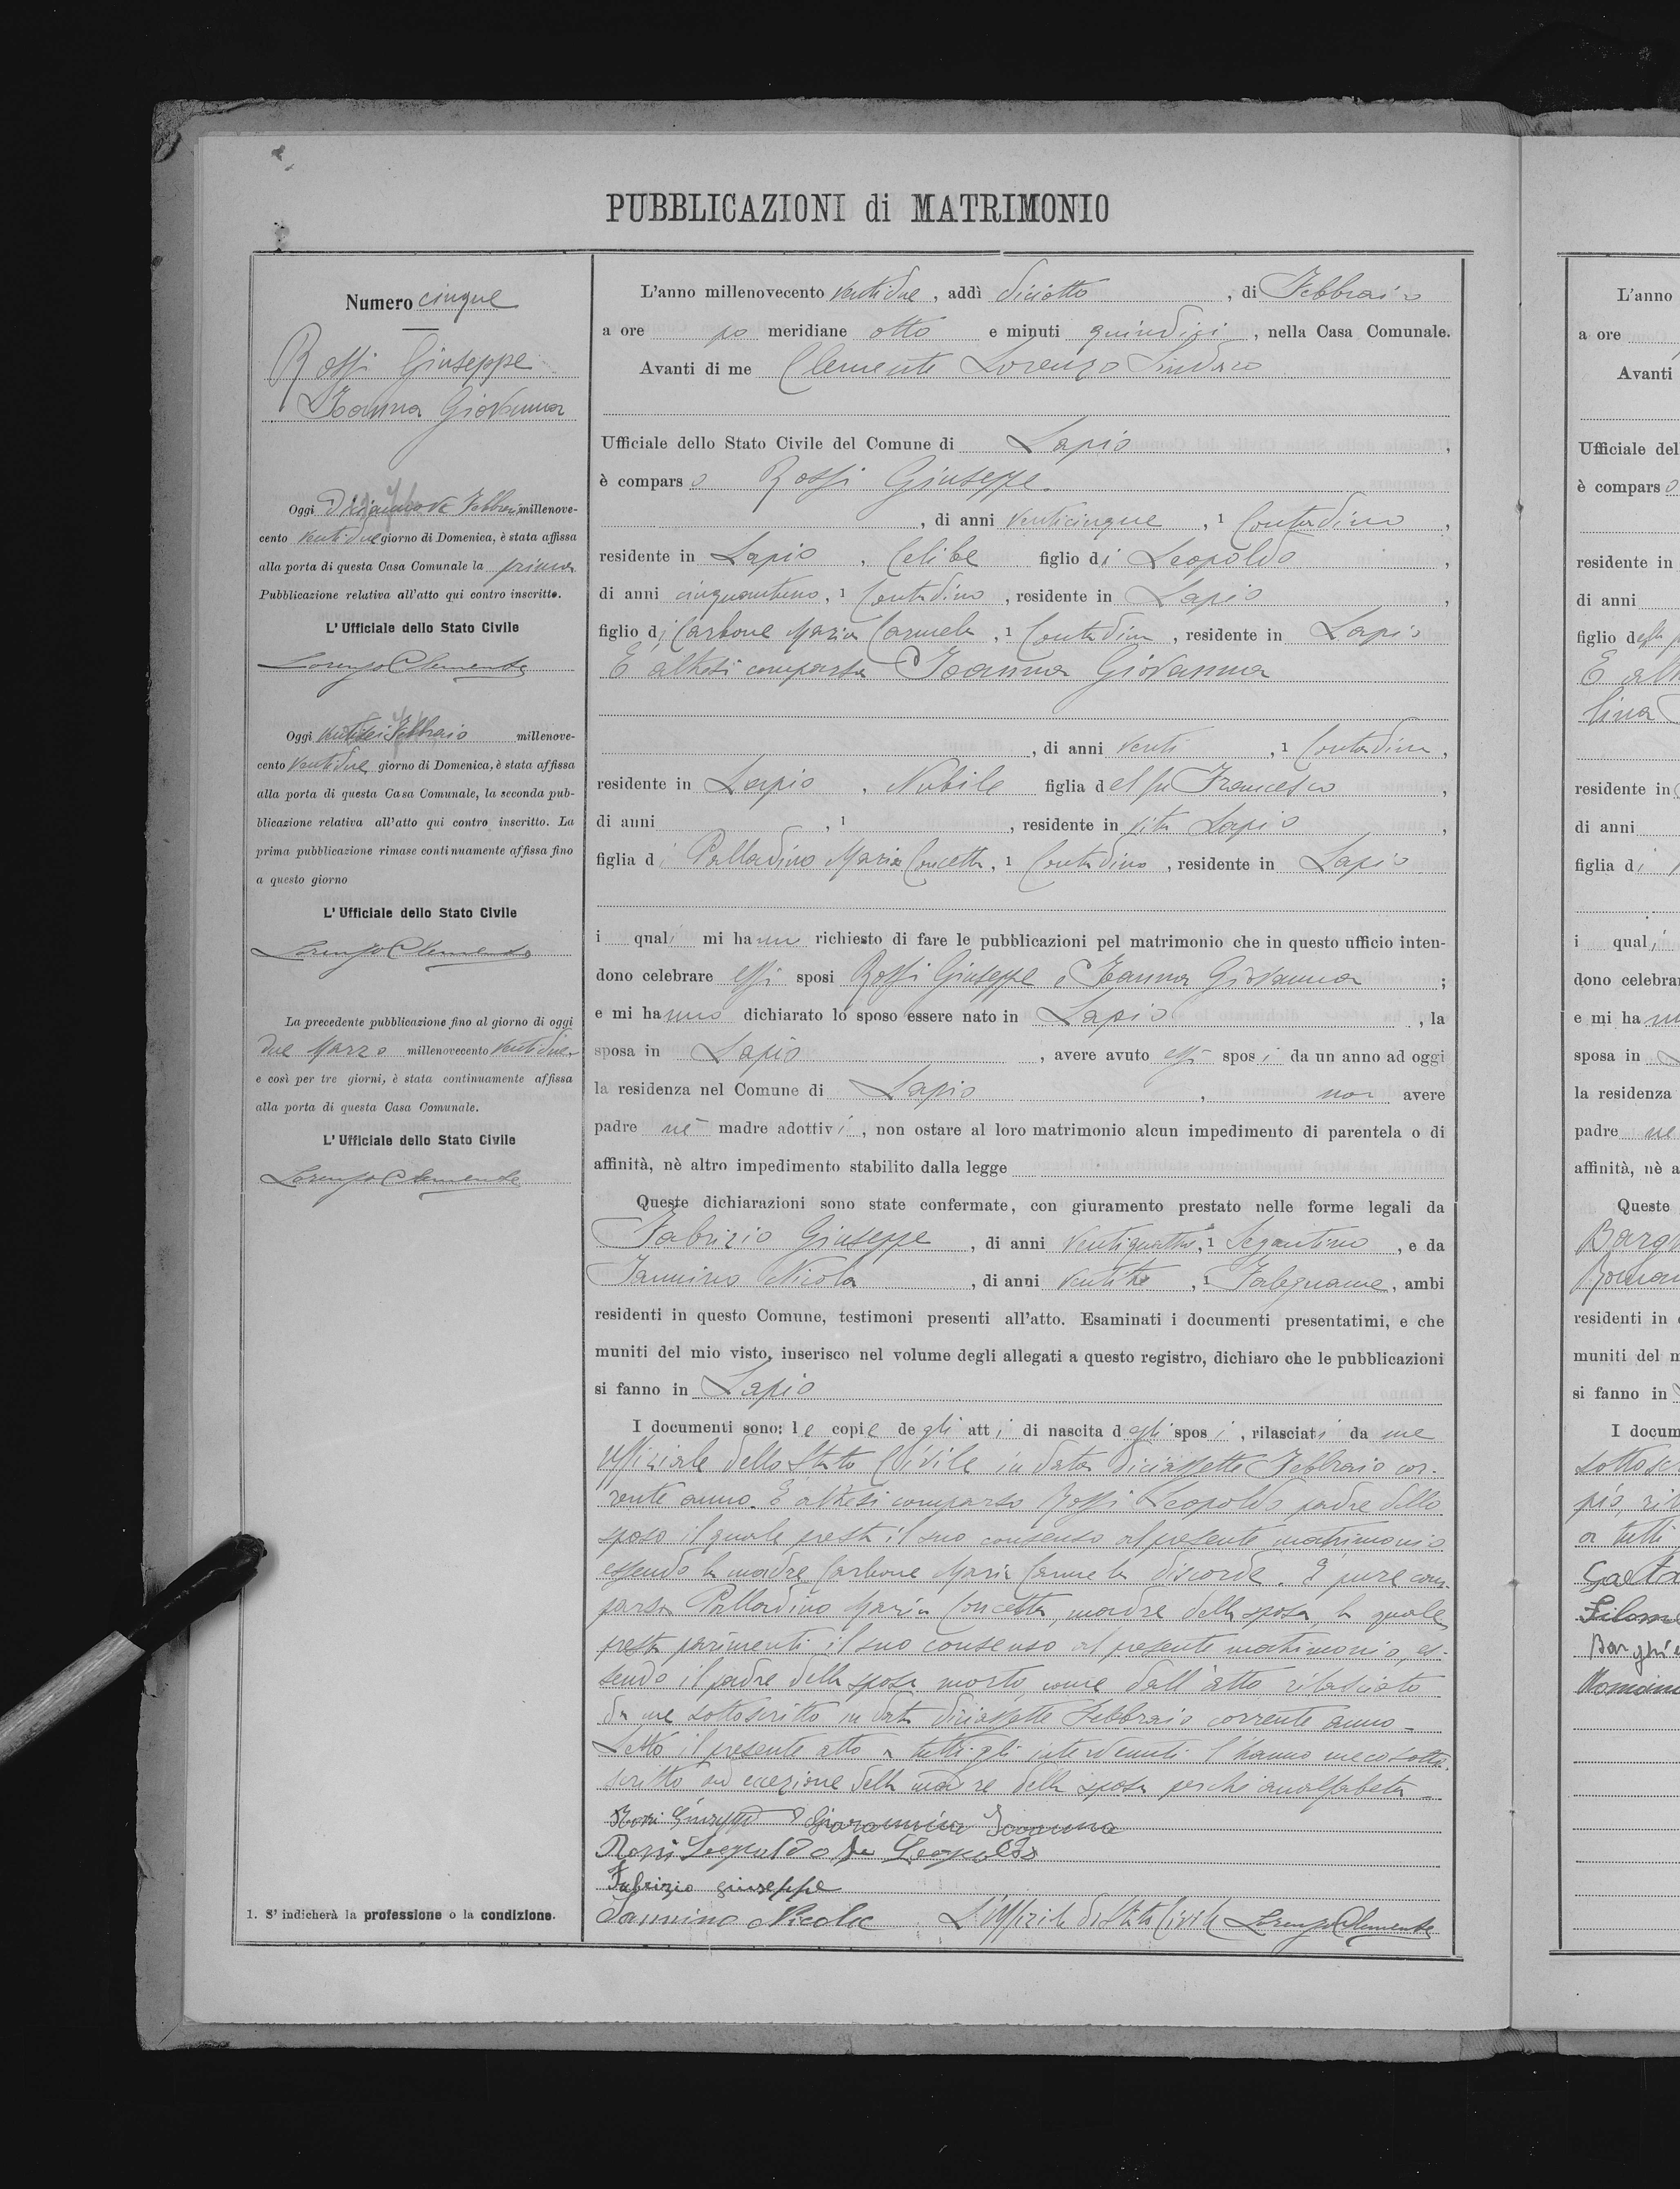 PUBBLICAZIONI di MATRIMONIO
Numero cinque
Rossi Giuseppe
Ioanna Giovanna
Oggi Diciannove Febbraio millenove-
cento ventidue giorno di Domenica, è stata affissa
alla porta di questa Casa Comunale la prima
Pubblicazione relativa all'atto qui contro inscritto.
L'Ufficiale dello Stato Civile
Lorenzo Clemente
Oggi ventisei Febbraio millenove-
cento ventidue giorno di Domenica, è stata affissa
alla porta di questa Casa Comunale, la seconda pub-
blicazione relativa all'atto qui contro inscritto. La
prima pubblicazione rimase continuamente affissa fino
a questo giorno
L'Ufficiale dello Stato Civile
Lorenzo Clemente
La precedente pubblicazione fino al giorno di oggi
due Marzo millenovecento ventidue
e così per tre giorni, è stata continuamente affissa
alla porta di questa Casa Comunale.
L'Ufficiale dello Stato Civile
Lorenzo Clemente
1. S'indicherà la professione o la condizione.
L'anno millenovecento ventidue, addì diciotto, di Febbraio
a ore po meridiane otto e minuti quindici, nella Casa Comunale.
Avanti di me Clemente Lorenzo Sindaco
Ufficiale dello Stato Civile del Comune di Lapio,
è comparso Rossi Giuseppe
, di anni venticinque, 1 Contadino,
residente in Lapio, Celibe figlio di Leopoldo,
di anni cinquantuno, 1 Contadino, residente in Lapio,
figlio di Carbone Maria Carmela, 1 Contadina, residente in Lapio
E altresì comparsa Ioanna Giovanna
, di anni venti, 1 Contadina,
residente in Lapio, Nubile figlia del fu Francesco,
di anni , 1 , residente in vita Lapio,
figlia di Palladino Maria Concetta, 1 Contadina, residente in Lapio
i quali mi hanno richiesto di fare le pubblicazioni pel matrimonio che in questo ufficio inten-
dono celebrare essi sposi Rossi Giuseppe e Ioanna Giovanna;
e mi hanno dichiarato lo sposo essere nato in Lapio, la
sposa in Lapio, avere avuto essi sposi da un anno ad oggi
la residenza nel Comune di Lapio, non avere
padre nè madre adottivi, non ostare al loro matrimonio alcun impedimento di parentela o di
affinità, nè altro impedimento stabilito dalla legge
Queste dichiarazioni sono state confermate, con giuramento prestato nelle forme legali da
Fabrizio Giuseppe, di anni ventiquattro, 1 Segantino, e da
Iannino Nicola, di anni ventitre, 1 Falegname, ambi
residenti in questo Comune, testimoni presenti all'atto. Esaminati i documenti presentatimi, e che
muniti del mio visto, inserisco nel volume degli allegati a questo registro, dichiaro che le pubblicazioni
si fanno in Lapio
I documenti sono: le copie degli atti di nascita degli sposi, rilasciati da me
Uffiziale dello Stato Civile in data diciassette Febbraio cor-
rente anno. E altresì comparso Rossi Leopoldo padre dello
sposo il quale presta il suo consenso al presente matrimonio
essendo la madre Carbone Maria Carmela discorde. E pure com-
parsa Palladino Maria Concetta, madre della sposa, la quale
presta parimenti il suo consenso al presente matrimonio, es-
sendo il padre della sposa morto, come dall'atto rilasciato
da me sottoscritto in data diciassette Febbraio corrente anno -
Letto il presente atto a tutti gli intervenuti l'hanno meco sotto-
scritto ad eccezione della madre della sposa perchè analfabeta -
Rossi Giuseppe Giovannina Ioanna
Rossi Leopoldo fu Leopoldo
Fabrizio Giuseppe
Iannino Nicola L'Uffiziale di Stato Civile Lorenzo Clemente
L'anno
a ore
Avanti
Ufficiale del
è comparso
residente in
di anni
figlio
residente in
di anni
figlia di
i quali
dono celebra
e mi ha
sposa in
la residenza
padre nè
affinità, nè a
Queste
residenti in
muniti del m
si fanno in
I docum